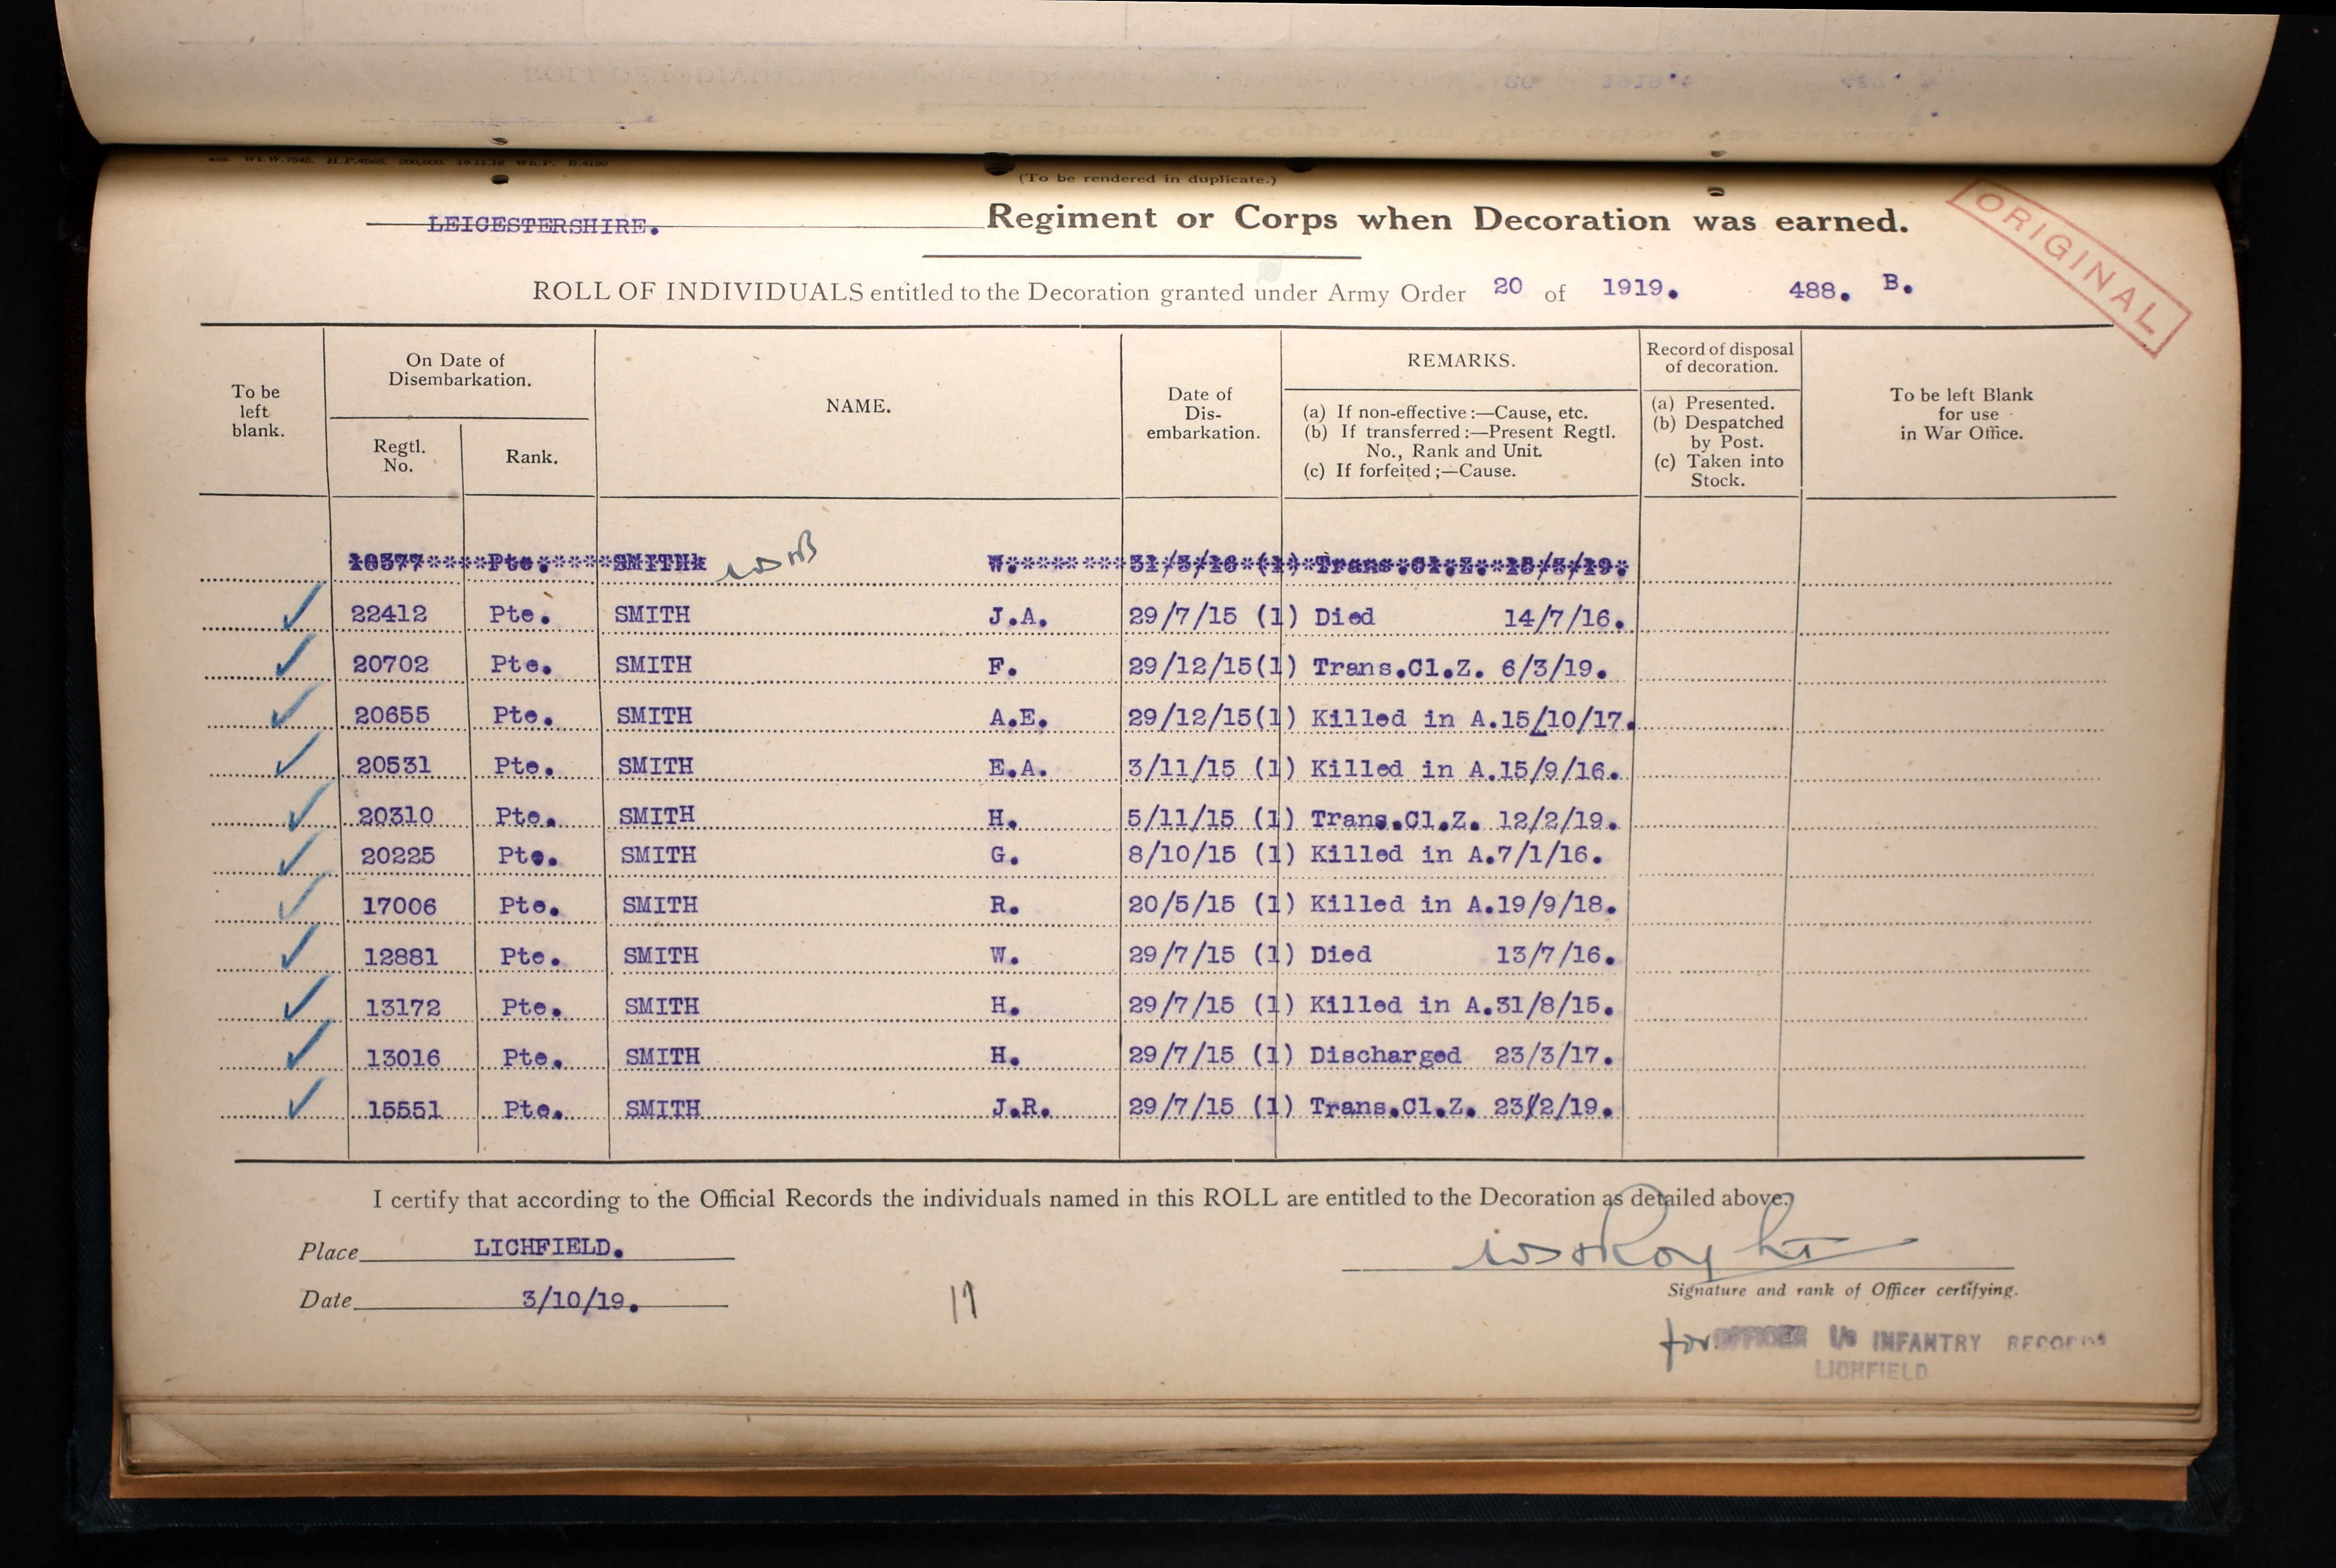 488. Wt.W.7545. H.P.4565. 200,000. 19.11.18 Wh.P. B.4190
(To be rendered in duplicate.)
LEICESTERSHIRE. Regiment or Corps when Decoration was earned.
ORIGINAL
ROLL OF INDIVIDUALS entitled to the Decoration granted under Army Order 20 of 1919. 488. B.
To be left blank.
On Date of Disembarkation.
Regtl. No.
Rank.
NAME.
Date of Dis-embarkation.
REMARKS.
(a) If non-effective:—Cause, etc.
(b) If transferred:—Present Regtl. No., Rank and Unit.
(c) If forfeited;—Cause.
Record of disposal of decoration.
(a) Presented.
(b) Despatched by Post.
(c) Taken into Stock.
To be left Blank for use in War Office.
Pte. SMITH W. 31/3/16 (1) Trans.Cl.Z. 15/3/19.
22412 Pte. SMITH J.A. 29/7/15 (1) Died 14/7/16.
20702 Pte. SMITH F. 29/12/15(1) Trans.Cl.Z. 6/3/19.
20655 Pte. SMITH A.E. 29/12/15(1) Killed in A.15/10/17.
20531 Pte. SMITH E.A. 3/11/15 (1) Killed in A.15/9/16.
20310 Pte. SMITH H. 5/11/15 (1) Trans.Cl.Z. 12/2/19.
20225 Pte. SMITH G. 8/10/15 (1) Killed in A.7/1/16.
17006 Pte. SMITH R. 20/5/15 (1) Killed in A.19/9/18.
12881 Pte. SMITH W. 29/7/15 (1) Died 13/7/16.
13172 Pte. SMITH H. 29/7/15 (1) Killed in A.31/8/15.
13016 Pte. SMITH H. 29/7/15 (1) Discharged 23/3/17.
15551 Pte. SMITH J.R. 29/7/15 (1) Trans.Cl.Z. 23/2/19.
I certify that according to the Official Records the individuals named in this ROLL are entitled to the Decoration as detailed above.
Place LICHFIELD.
Date 3/10/19.
Signature and rank of Officer certifying.
for OFFICER I/c INFANTRY RECORDS
LICHFIELD